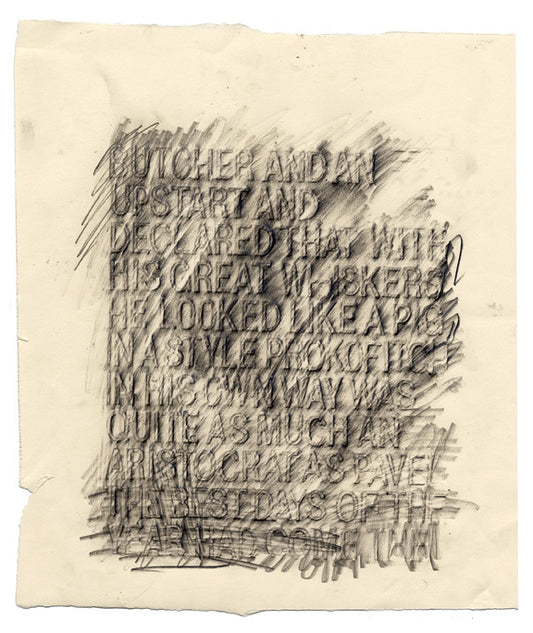 BUTCHER AND AN
UPSTART AND
DECLARED THAT WITH
HIS GREAT WHISKERS
HE LOOKED LIKE A PIG
IN A STYLE PROKOFITCH
IN HIS OWN WAY WAS
QUITE AS MUCH AN
ARISTOCRAT AS PAVEL
THE BEST DAYS OF THE
YEAR HAD COME